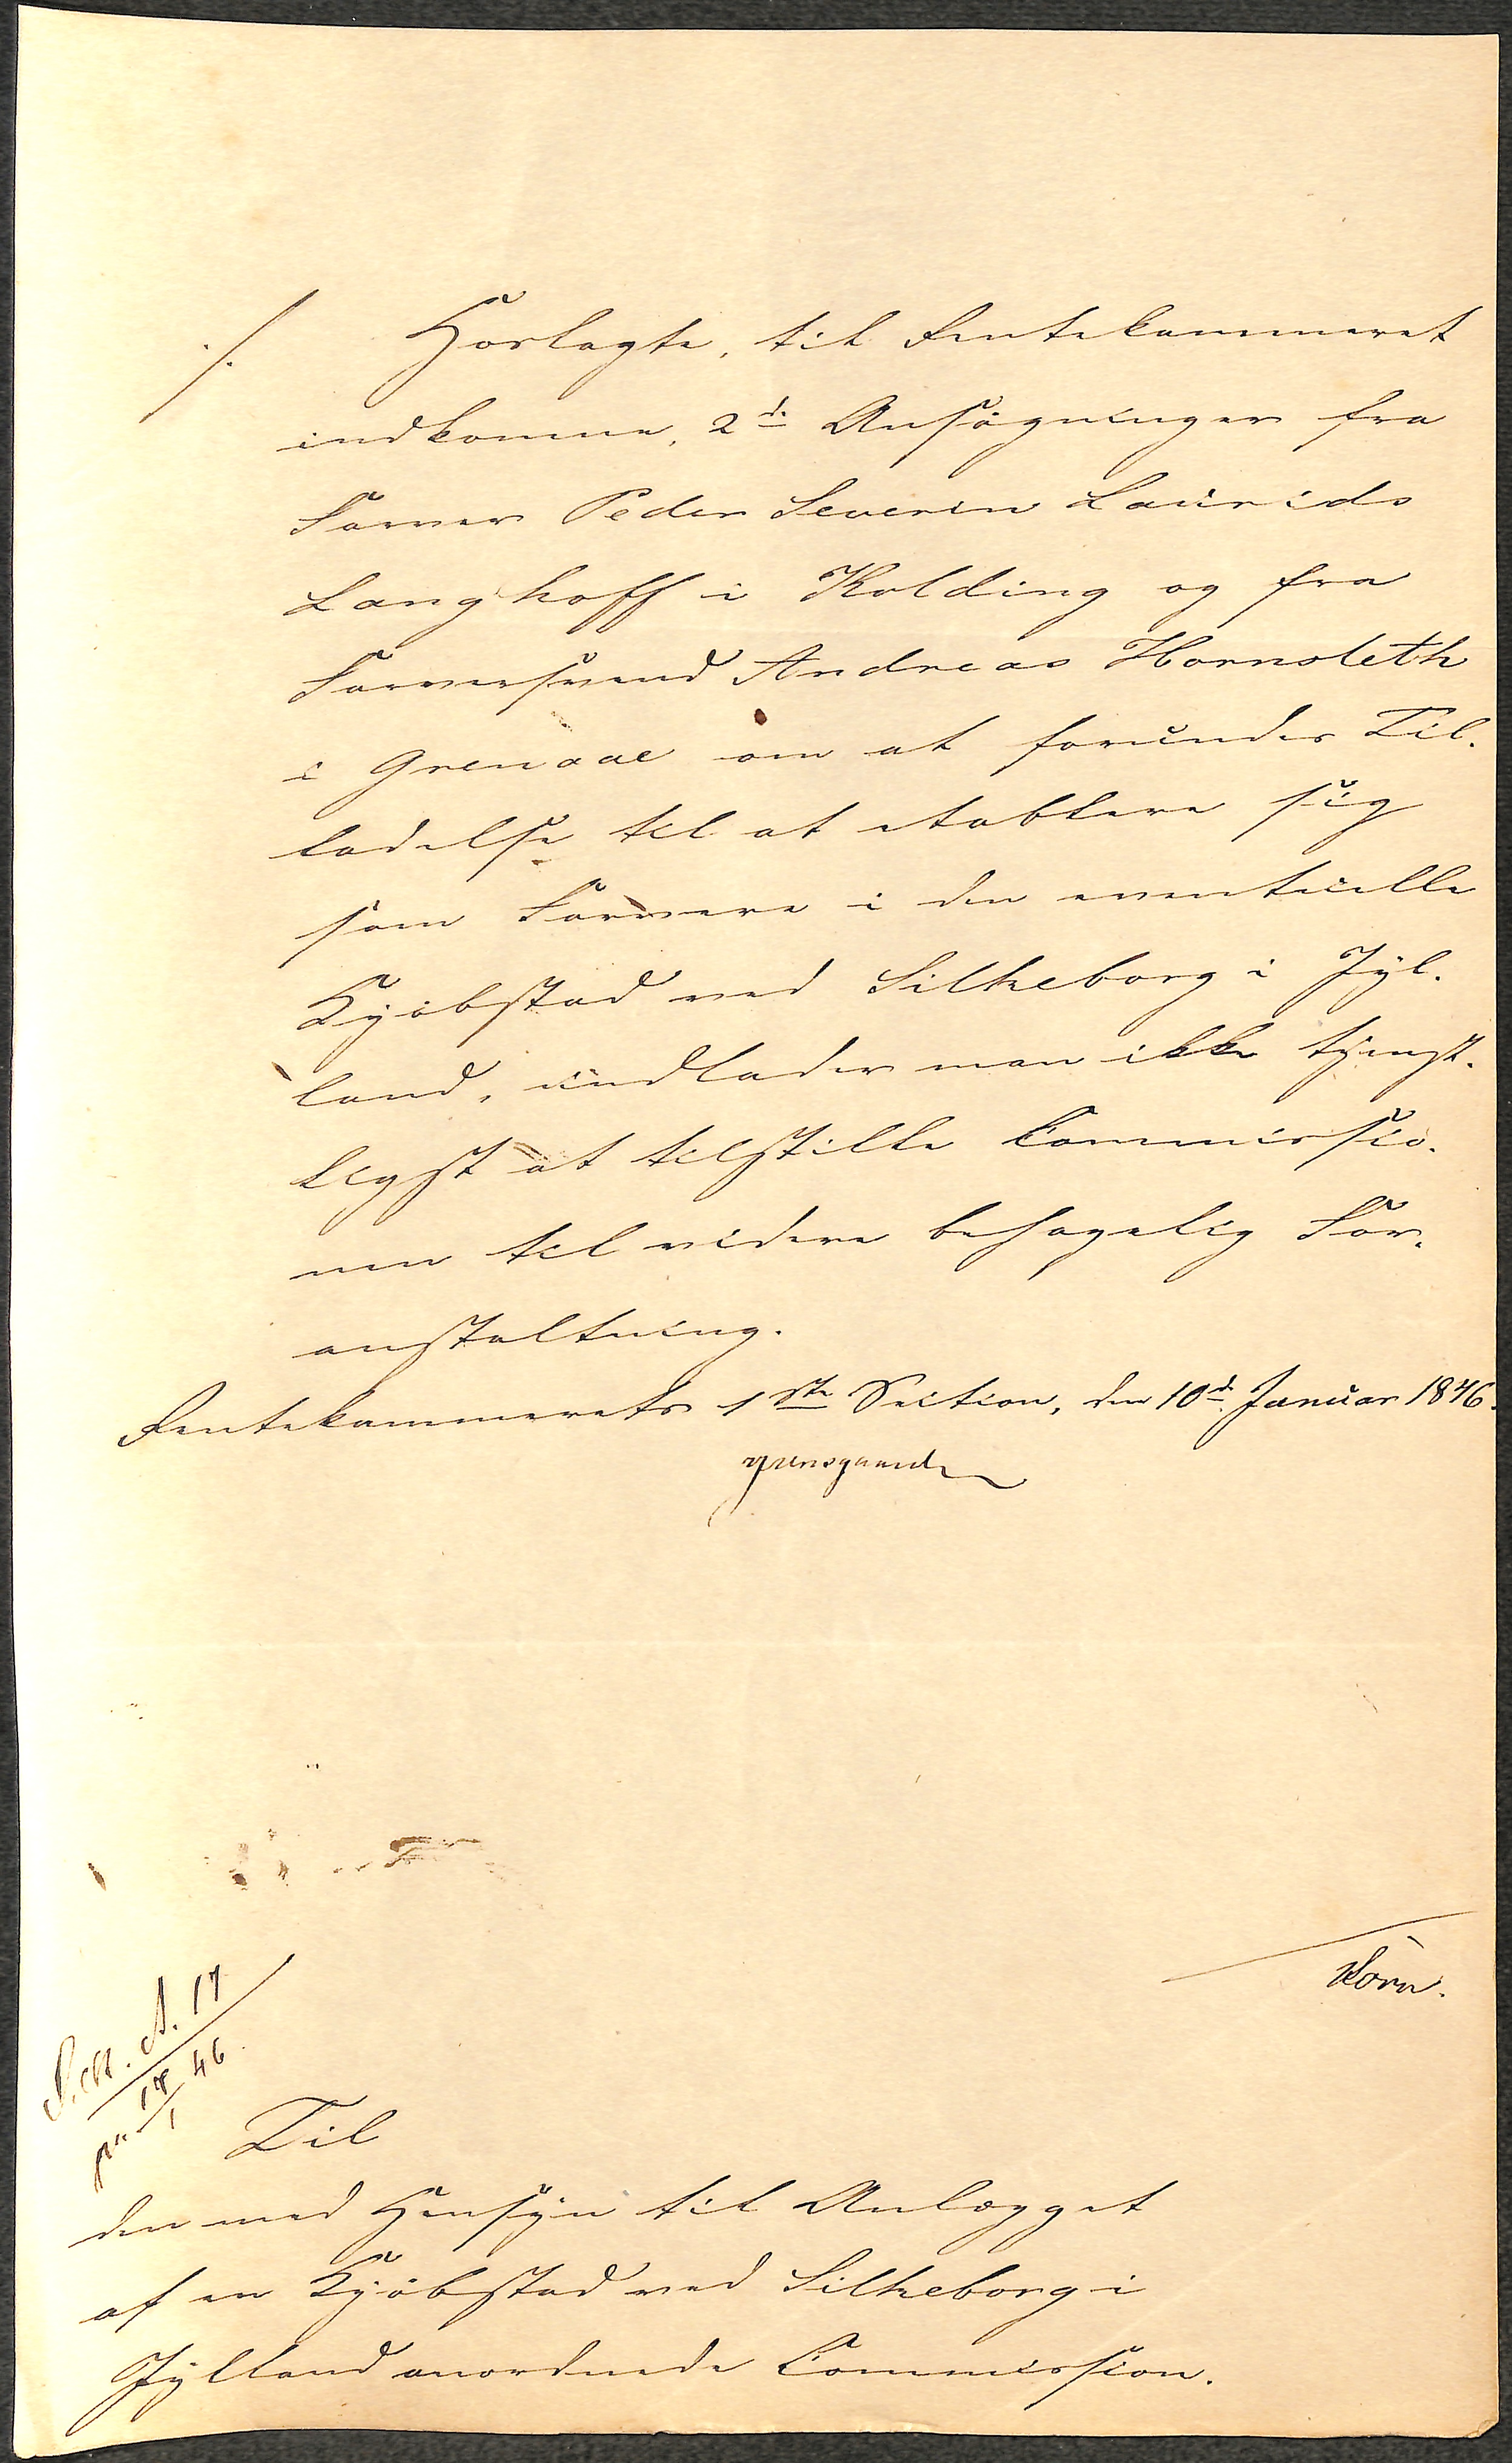 ./. Hoslagte, til Rentekammeret
indkomne, 2de Ansøgninger fra
Farver Peder Severin Laurids
Langhoff i Kolding og fra
Farversvend Andreas Hornsleth
i Grenaae om at forundes Til-
ladelse til at etablere sig
som Farvere i den eventuelle
Kjøbstad ved Silkeborg i Jyl-
land, undlader man ikke tjenst-
ligst at tilstille Commissio-
nen til videre behagelig For-
anstaltning.
Rentekammerets 1ste Section, den 10d Januar 1846.
Grensgaard
Korn.
S. M. A. 17
pr 14/1 46.
Til
den med Hensyn til Anlægget
af en Kjøbstad ved Silkeborg i
Jylland anordnede Commission.